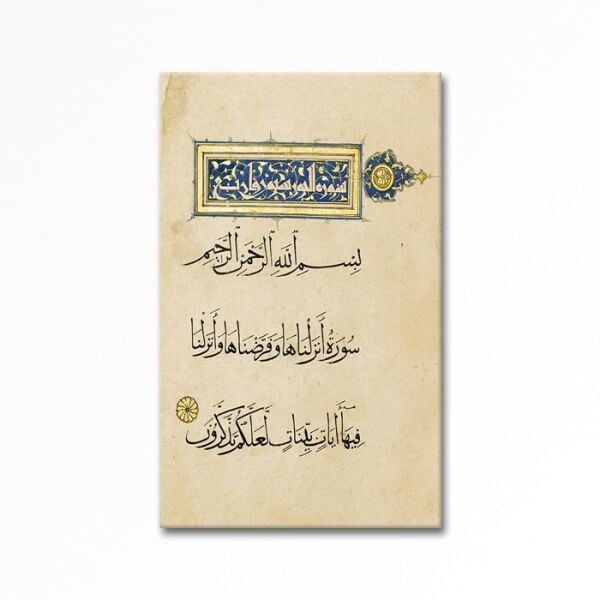 سورة النور ستون واربع
بِسْمِ اللَّهِ الرَّحْمٰنِ الرَّحِيمِ
سُورَةٌ أَنْزَلْنَاهَا وَفَرَضْنَاهَا وَأَنْزَلْنَا
فِيهَا أٓيَاتٍ بَيِّنَاتٍ لَّعَلَّكُمْ تَذَكَّرُونَ